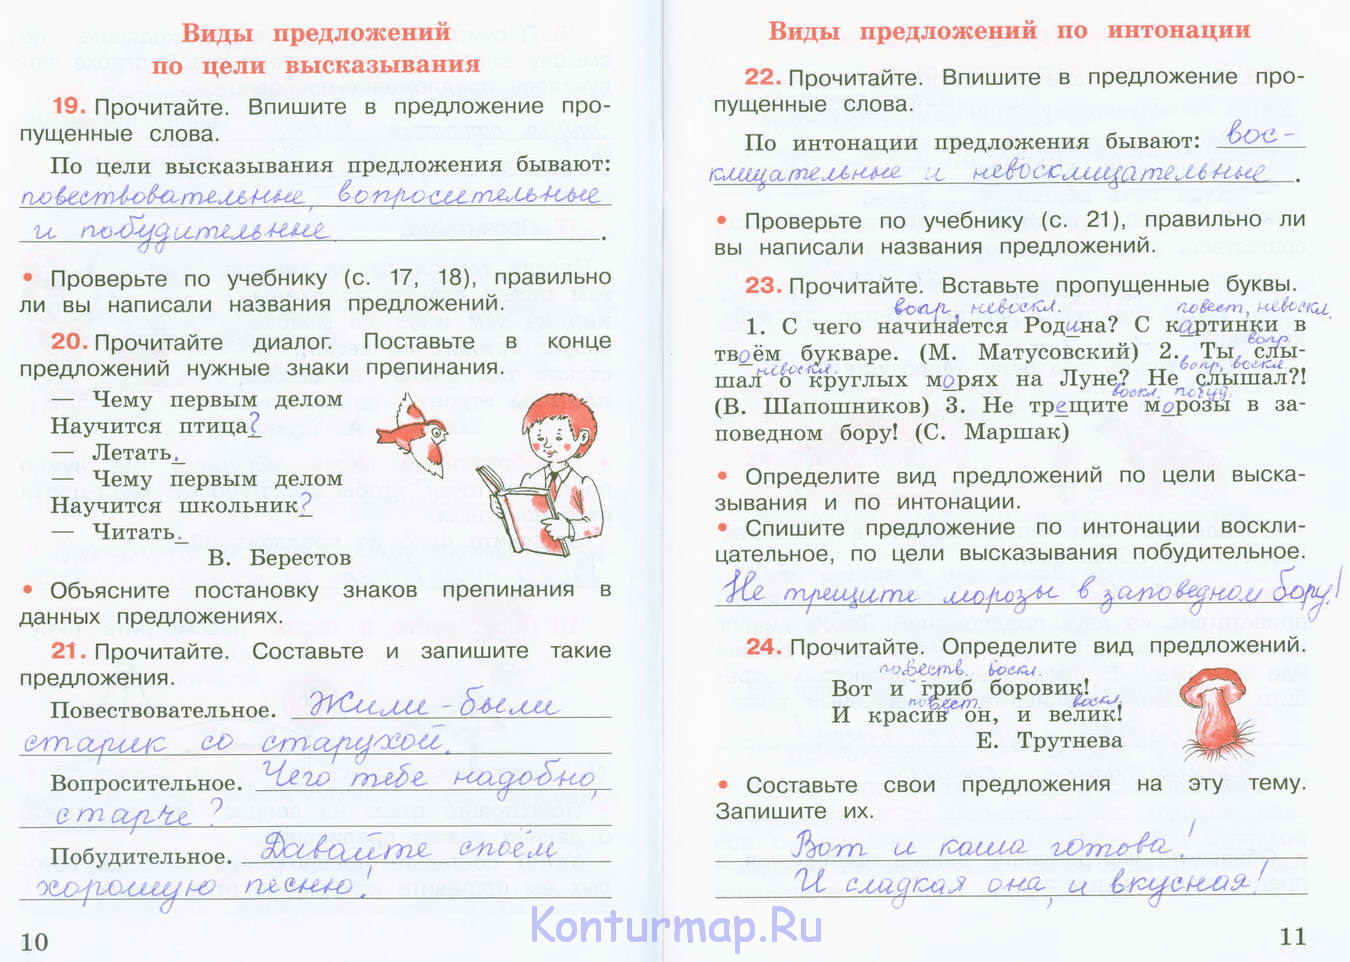 Виды предложений
по цели высказывания
19. Прочитайте. Впишите в предложение про-
пущенные слова.
По цели высказывания предложения бывают:
повествовательные, вопросительные
и побудительные .
• Проверьте по учебнику (с. 17, 18), правильно
ли вы написали названия предложений.
20. Прочитайте диалог. Поставьте в конце
предложений нужные знаки препинания.
— Чему первым делом
Научится птица?
— Летать.
— Чему первым делом
Научится школьник?
— Читать.
В. Берестов
• Объясните постановку знаков препинания в
данных предложениях.
21. Прочитайте. Составьте и запишите такие
предложения.
Повествовательное. Жили-были
старик со старухой.
Вопросительное. Чего тебе надобно,
старче?
Побудительное. Давайте споём
хорошую песню!
10
Виды предложений по интонации
22. Прочитайте. Впишите в предложение про-
пущенные слова.
По интонации предложения бывают: вос-
клицательные и невосклицательные .
• Проверьте по учебнику (с. 21), правильно ли
вы написали названия предложений.
23. Прочитайте. Вставьте пропущенные буквы.
вопр. невоскл. повест. невоскл.
1. С чего начинается Родина? С картинки в
вопр.
твоём букваре. (М. Матусовский) 2. Ты слы-
невоскл. вопр. воскл.
шал о круглых морях на Луне? Не слышал?!
воскл. побуд.
(В. Шапошников) 3. Не трещите морозы в за-
поведном бору! (С. Маршак)
• Определите вид предложений по цели выска-
зывания и по интонации.
• Спишите предложение по интонации воскли-
цательное, по цели высказывания побудительное.
Не трещите морозы в заповедном бору!
24. Прочитайте. Определите вид предложений.
повеств. воскл.
Вот и гриб боровик!
повест. воскл.
И красив он, и велик!
Е. Трутнева
• Составьте свои предложения на эту тему.
Запишите их.
Вот и каша готова!
И сладкая она, и вкусная!
11
Konturmap.Ru